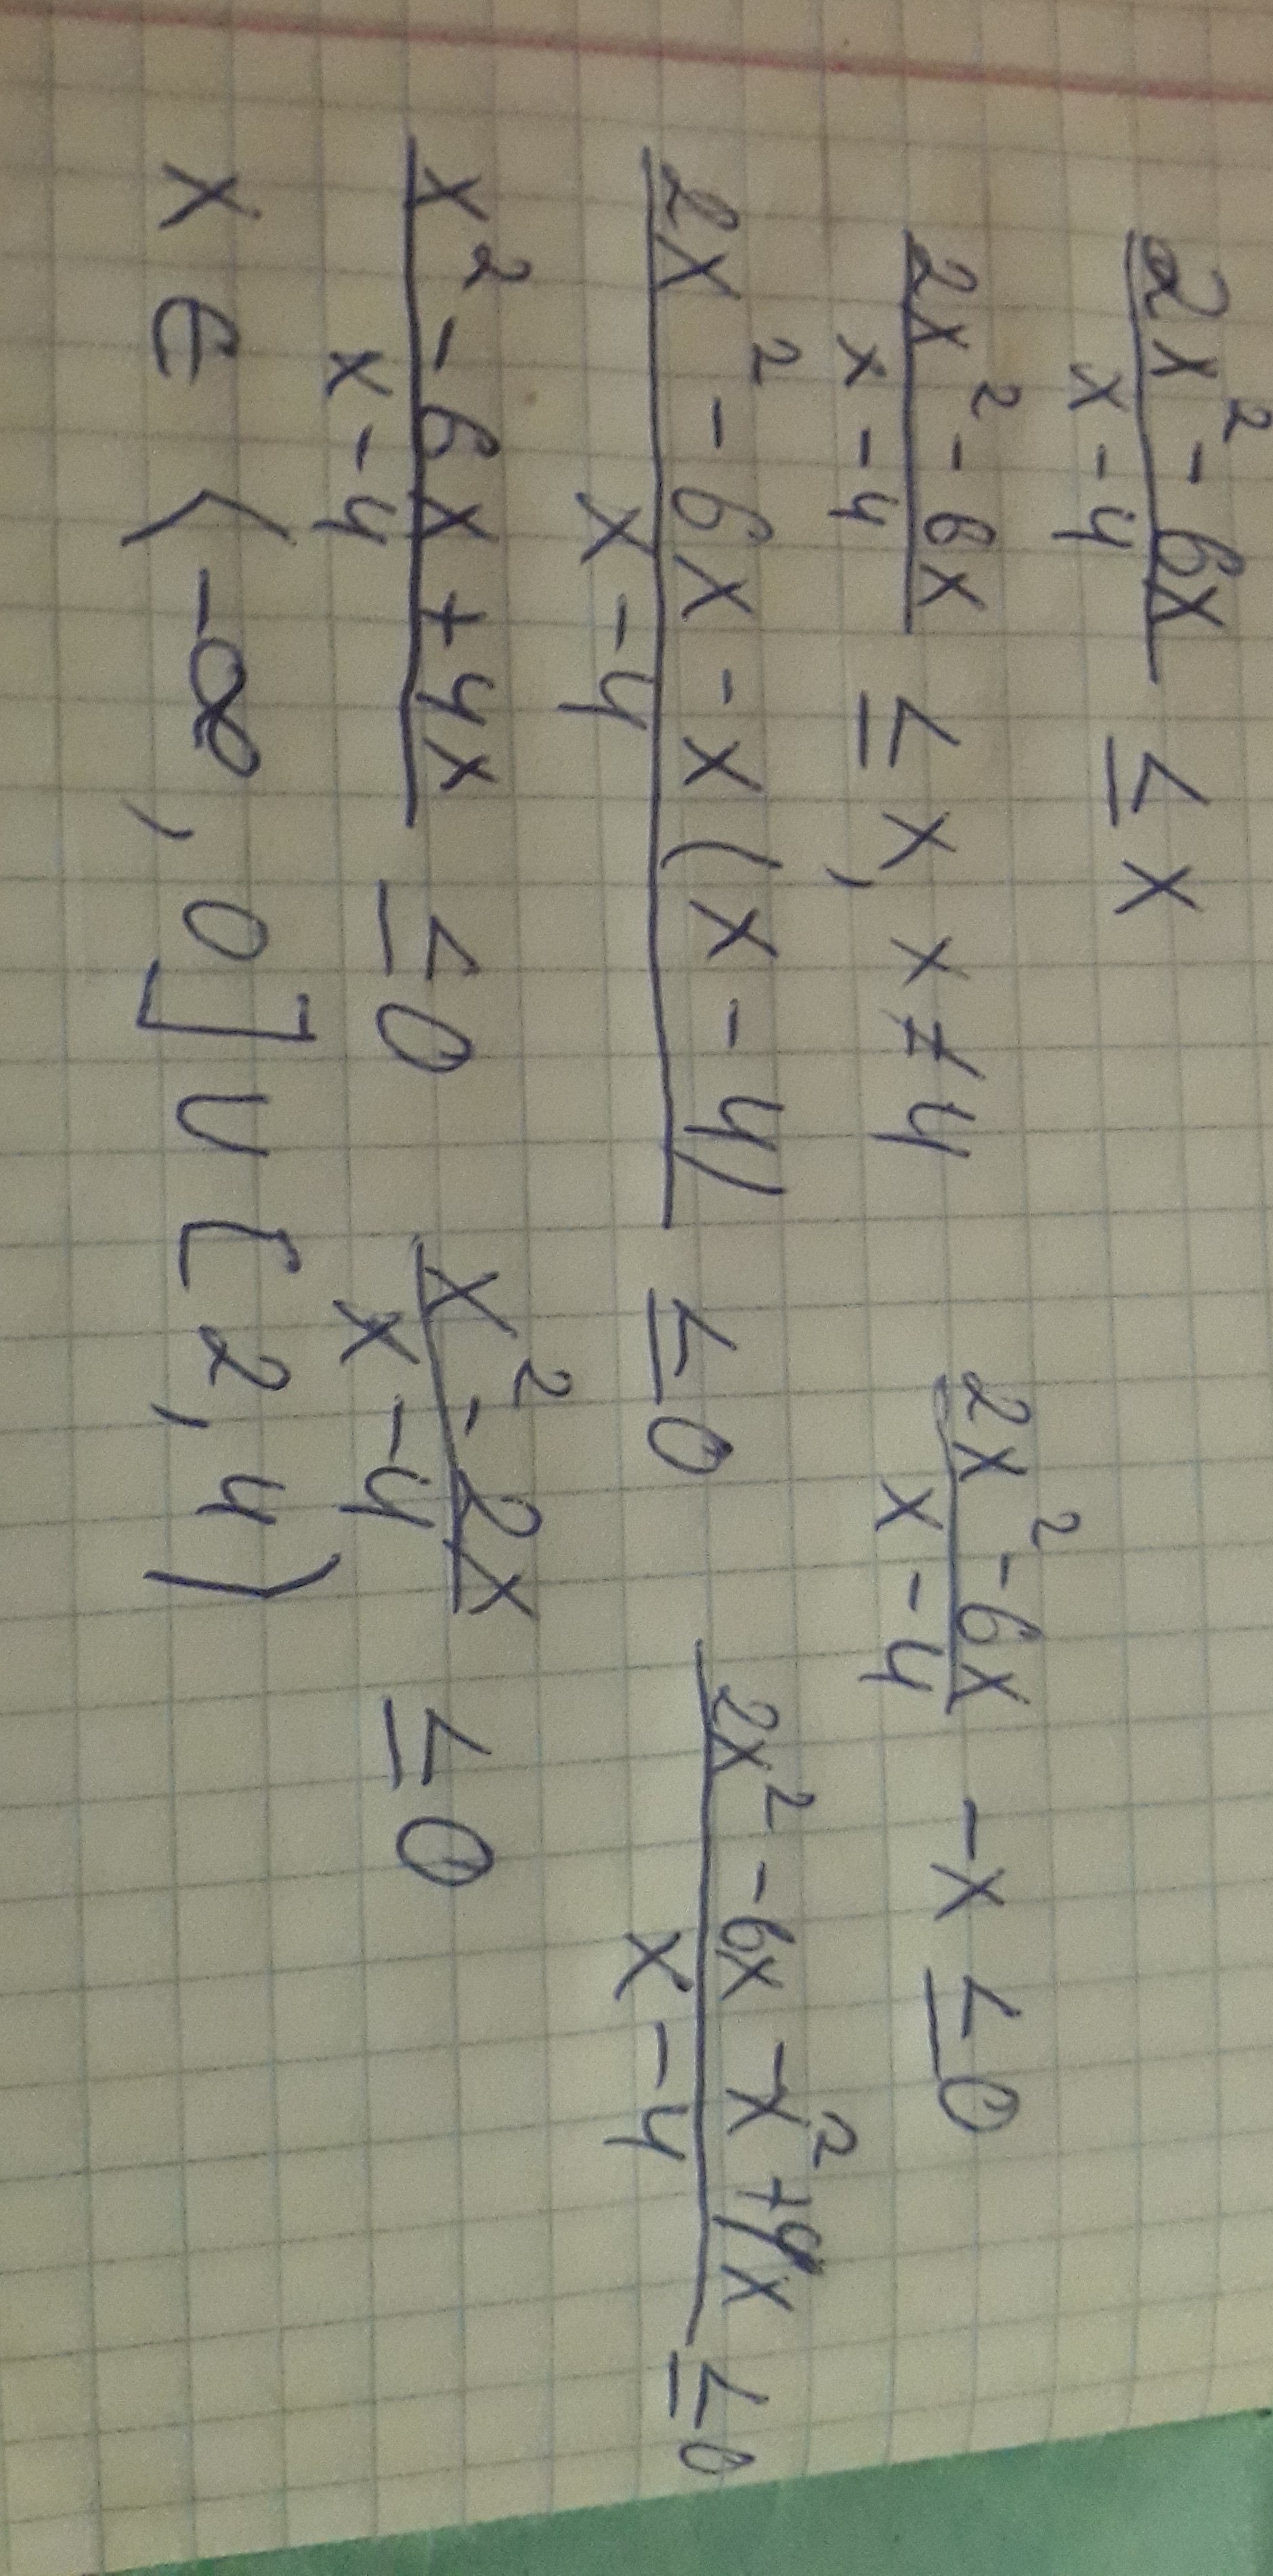 (2x² - 6x)/(x - 4) ≤ x
(2x² - 6x)/(x - 4) ≤ x, x ≠ 4 (2x² - 6x)/(x - 4) - x ≤ 0
(2x² - 6x - x(x - 4))/(x - 4) ≤ 0 (2x² - 6x - x² + 4x)/(x - 4) ≤ 0
(x² - 6x + 4x)/(x - 4) ≤ 0 (x² - 2x)/(x - 4) ≤ 0
x ∈ ⟨-∞, 0] ∪ [2, 4)